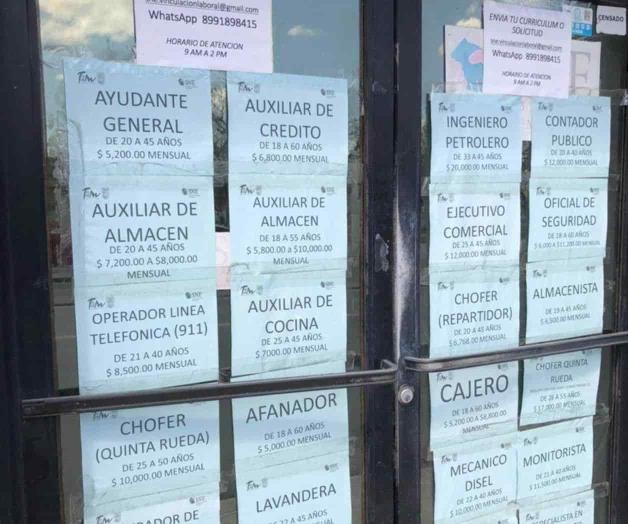 sne.vinculacionlaboral@gmail.com
WhatsApp 8991898415
HORARIO DE ATENCION
9 AM A 2 PM
ENVIA TU CURRICULUM O
SOLICITUD
sne.vinculacionlaboral@gmail.com
WhatsApp 8991898415
HORARIO DE ATENCION
9 AM A 2 PM
CENSADO
AYUDANTE
GENERAL
DE 20 A 45 AÑOS
$ 5,200.00 MENSUAL
AUXILIAR DE
CREDITO
DE 18 A 60 AÑOS
$ 6,800.00 MENSUAL
AUXILIAR DE
ALMACEN
DE 20 A 45 AÑOS
$ 7,200.00 A $8,000.00
MENSUAL
AUXILIAR DE
ALMACEN
DE 18 A 55 AÑOS
$ 5,800.00 a $10,000.00
MENSUAL
OPERADOR LINEA
TELEFONICA (911)
DE 21 A 40 AÑOS
$ 8,500.00 MENSUAL
AUXILIAR DE
COCINA
DE 25 A 45 AÑOS
$ 7000.00 MENSUAL
CHOFER
(QUINTA RUEDA)
DE 25 A 50 AÑOS
$ 10,000.00 MENSUAL
AFANADOR
DE 18 A 60 AÑOS
$ 5,000.00 MENSUAL
LAVANDERA
A 45 AÑOS
DE
INGENIERO
PETROLERO
DE 33 A 45 AÑOS
$ 20,000.00 MENSUAL
CONTADOR
PUBLICO
DE 20 A 40 AÑOS
$ 12,000.00 MENSUAL
EJECUTIVO
COMERCIAL
DE 25 A 45 AÑOS
$ 12,000.00 MENSUAL
OFICIAL DE
SEGURIDAD
DE 18 A 60 AÑOS
MENSUAL
CHOFER
(REPARTIDOR)
DE 20 A 45 AÑOS
$ 8,768.00 MENSUAL
ALMACENISTA
DE 19 A 45 AÑOS
$ 6,500.00 MENSUAL
CAJERO
DE 18 A 60 AÑOS
$ 5,200.00 a $8,800.00
MENSUAL
CHOFER QUINTA
RUEDA
DE 28 A 55 AÑOS
$ 17,000.00 MENSUAL
MECANICO
DISEL
DE 22 A 40 AÑOS
$ 10,000.00 MENSUAL
MONITORISTA
DE 21 A 40 AÑOS
$ 11,500.00 MENSUAL
EN